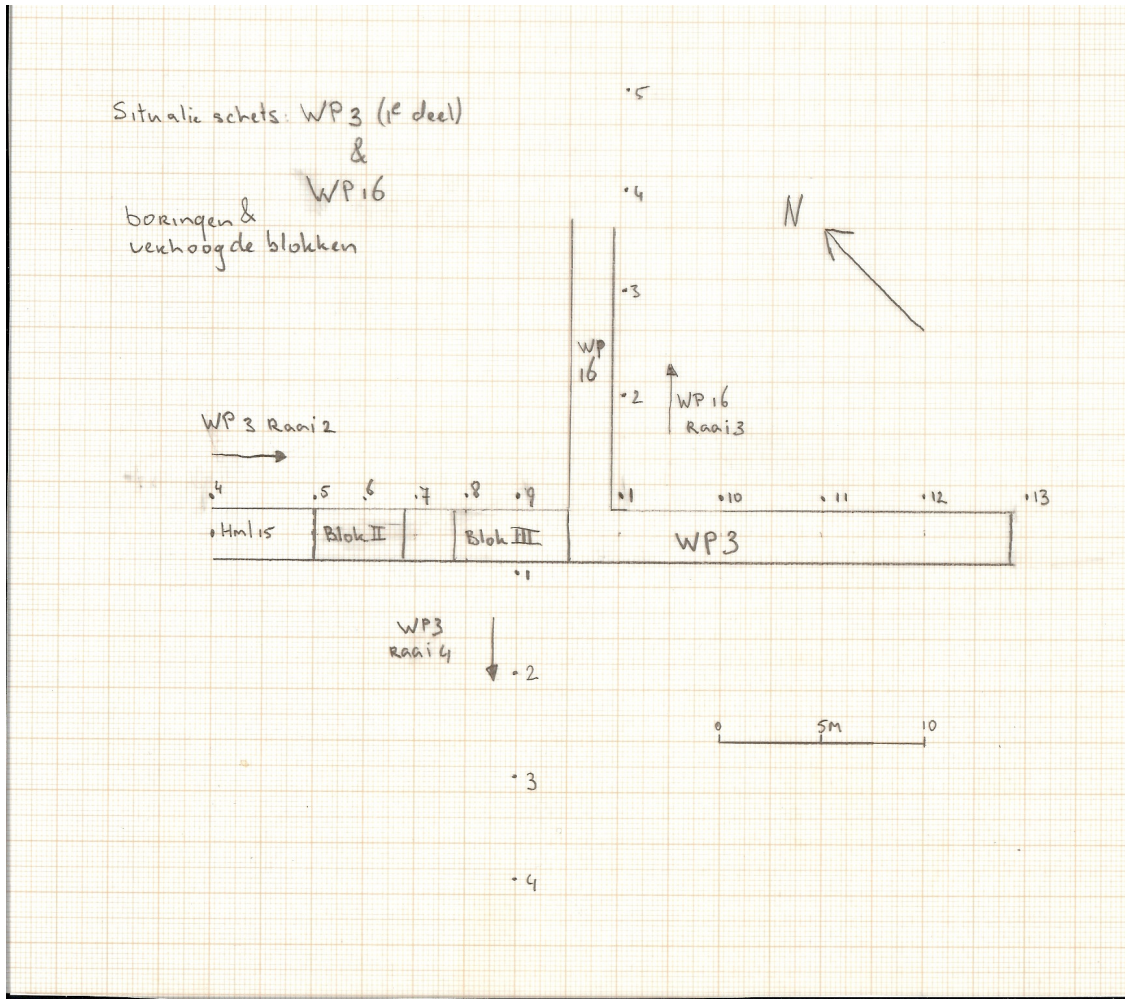 Situatie schets: WP3 (1e deel)
&
WP16
boringen &
verhoogde blokken
N
.5
.4
.3
.2
WP
16
WP16
Raai3
WP 3 Raai2
.4 .5 .6 .7 .8 .9 .1 .10 .11 .12 .13
.Hml15 Blok II Blok III WP3
.1
WP3
Raai4
.2
0 5M 10
.3
.4